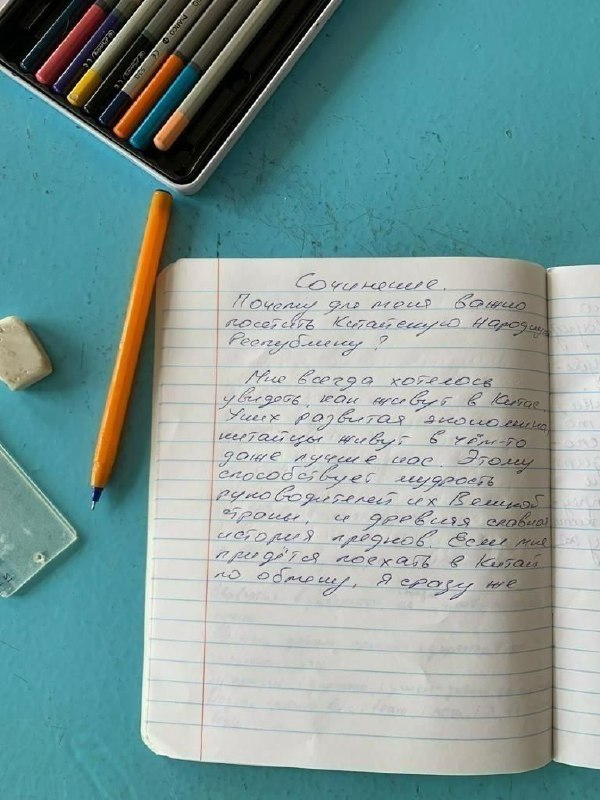 Сочинение.
Почему для меня важно
посетить Китайскую Народную
Республику?
Мне всегда хотелось
увидеть, как живут в Китае.
У них развитая экономика,
китайцы живут в чём-то
даже лучше нас. Этому
способствует мудрость
руководителей их Великой
страны, и древняя славная
история предков. Если мне
придётся поехать в Китай
по обмену, я сразу же